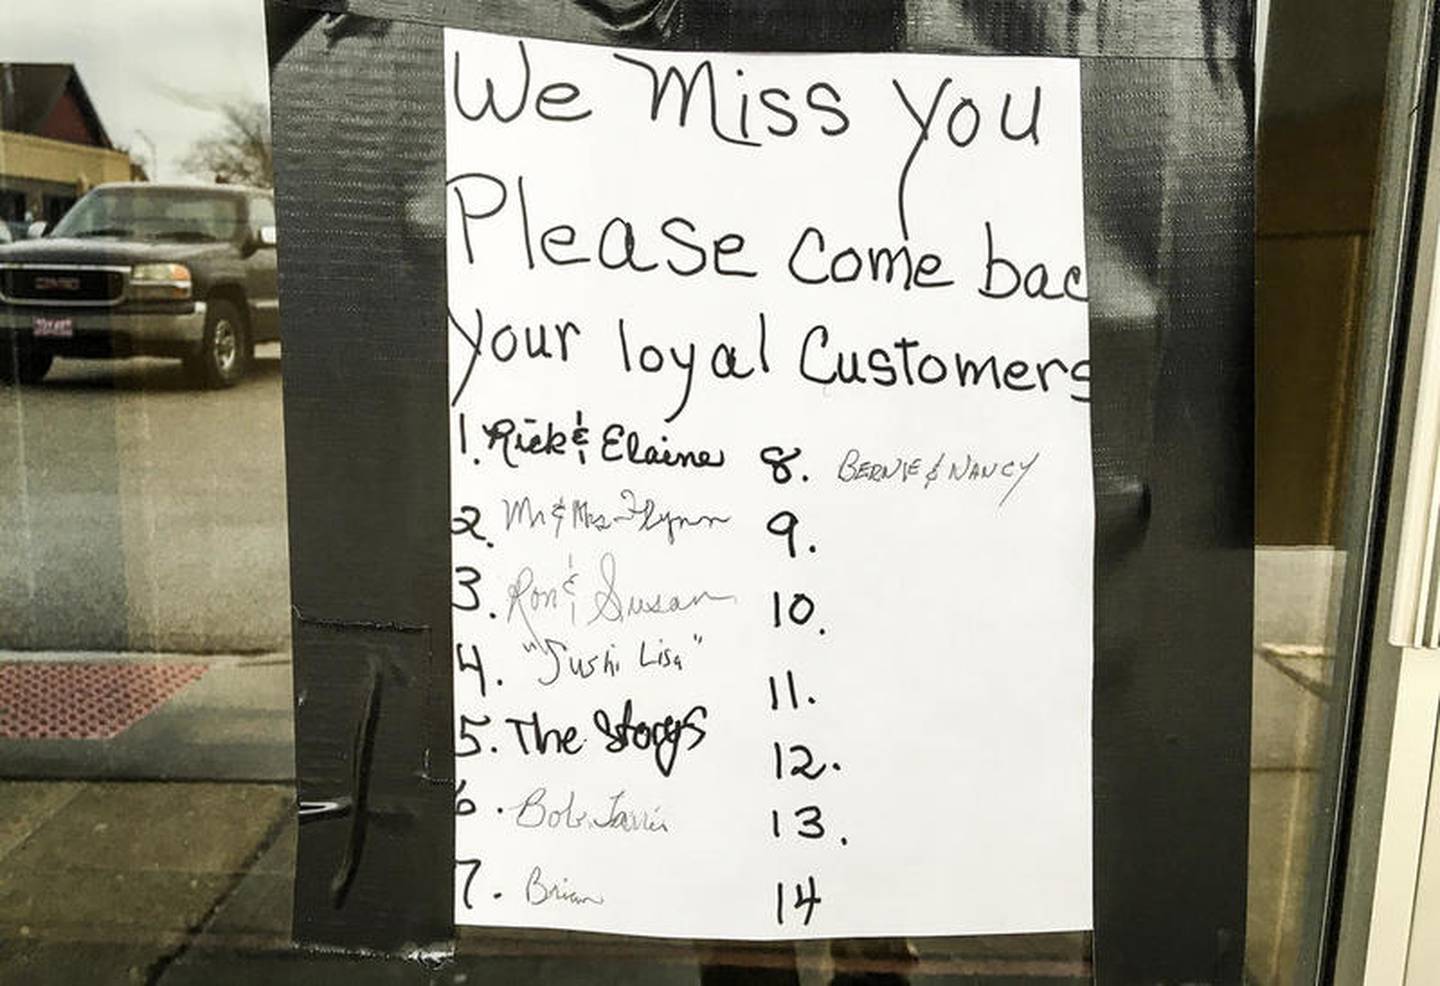 We Miss You
Please come bac
your loyal Customers
1. Rick & Elaine
2. Mr & Mrs Flynn
3. Ron & Susan
4. "Sushi Lisa"
5. The Storys
6. Bob
7. Brian
8. BERNIE & NANCY
9.
10.
11.
12.
13.
14